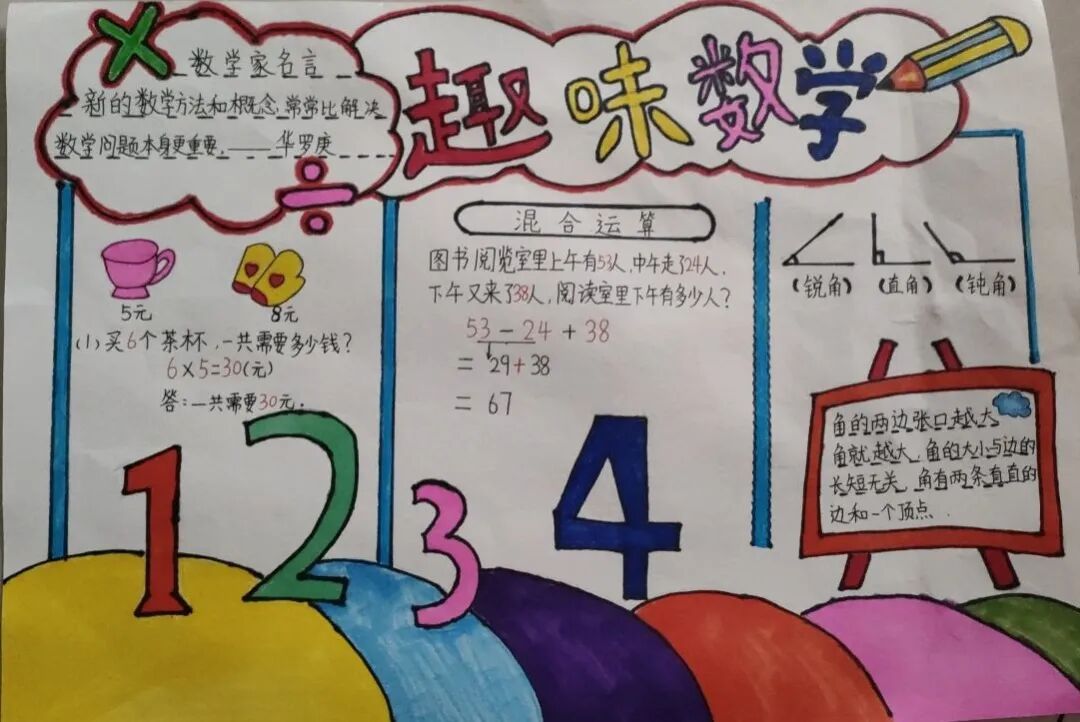 趣味数学
数学家名言
新的数学方法和概念,常常比解决
数学问题本身更重要.——华罗庚
5元
8元
(1)买6个茶杯,一共需要多少钱?
6×5=30(元)
答:一共需要30元.
混合运算
图书阅览室里上午有53人,中午走了24人,
下午又来了38人,阅读室里下午有多少人?
53-24+38
=29+38
=67
(锐角) (直角) (钝角)
角的两边张口越大
角就越大,角的大小与边的
长短无关,角有两条直直的
边和一个顶点.
1 2 3 4